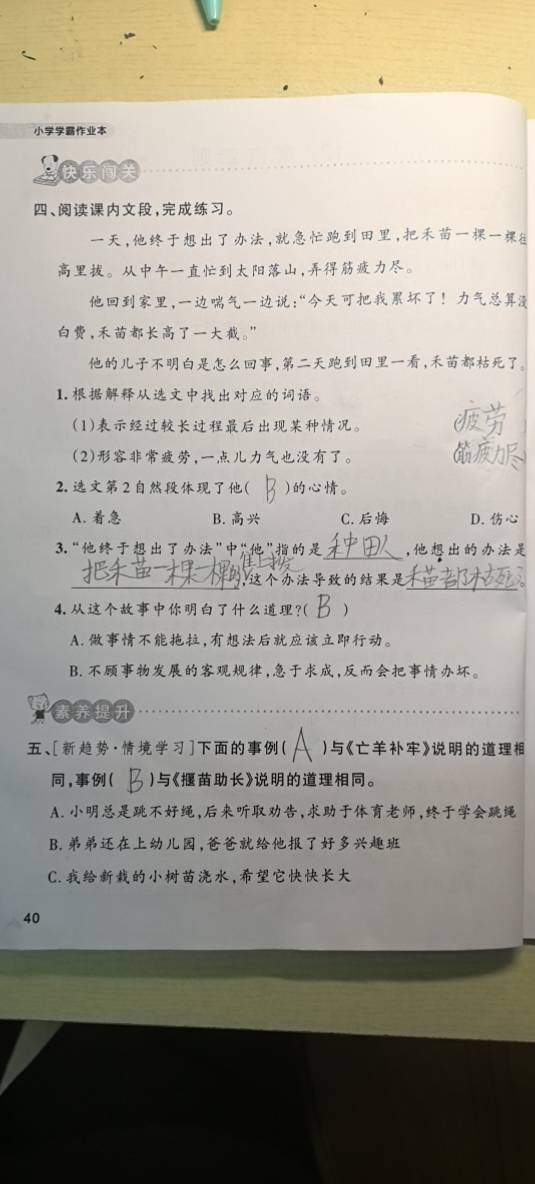 小学学霸作业本
快乐闯关
四、阅读课内文段,完成练习。
一天,他终于想出了办法,就急忙跑到田里,把禾苗一棵一棵往
高里拔。从中午一直忙到太阳落山,弄得筋疲力尽。
他回到家里,一边喘气一边说:“今天可把我累坏了!力气总算没
白费,禾苗都长高了一大截。”
他的儿子不明白是怎么回事,第二天跑到田里一看,禾苗都枯死了。
1.根据解释从选文中找出对应的词语。
(1)表示经过较长过程最后出现某种情况。 疲劳
(2)形容非常疲劳,一点儿力气也没有了。 筋疲力尽
2.选文第2自然段体现了他( B )的心情。
A.着急 B.高兴 C.后悔 D.伤心
3.“他终于想出了办法”中“他”指的是 种田人 ,他想出的办法是
把禾苗一棵一棵的往上拔 ,这个办法导致的结果是 禾苗都枯死了。
4.从这个故事中你明白了什么道理?( B )
A.做事情不能拖拉,有想法后就应该立即行动。
B.不顾事物发展的客观规律,急于求成,反而会把事情办坏。
素养提升
五、[新趋势·情境学习]下面的事例( A )与《亡羊补牢》说明的道理相
同,事例( B )与《揠苗助长》说明的道理相同。
A.小明总是跳不好绳,后来听取劝告,求助于体育老师,终于学会跳绳
B.弟弟还在上幼儿园,爸爸就给他报了好多兴趣班
C.我给新栽的小树苗浇水,希望它快快长大
40